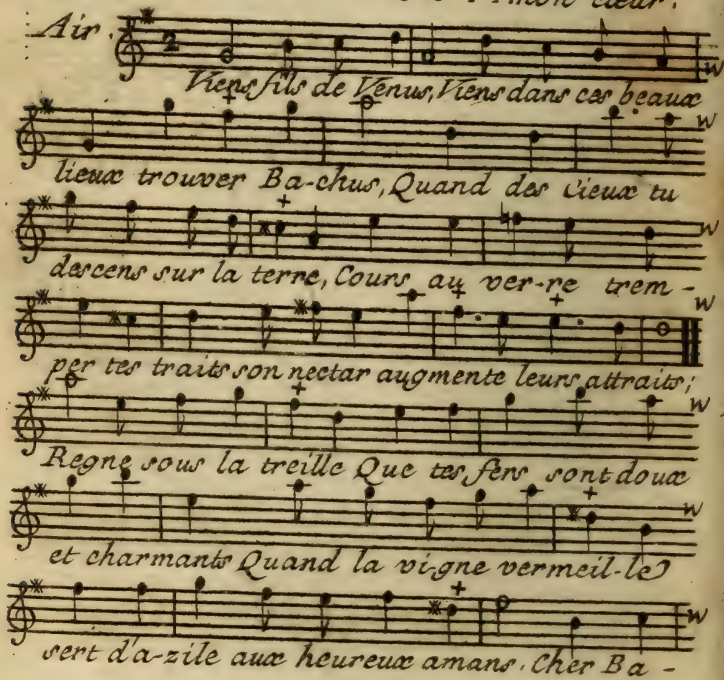 mon cœur.
Air.
2
Viens fils de Venus, Viens dans ces beaux
lieux trouver Ba-chus, Quand des Cieux tu
descens sur la terre, Cours au ver-re trem-
per tes traits son nectar augmente leurs attraits;
Regne sous la treille Que tes fers sont doux
et charmants Quand la vi-gne vermeil-le
sert d'a-zile aux heureux amans. Cher Ba-